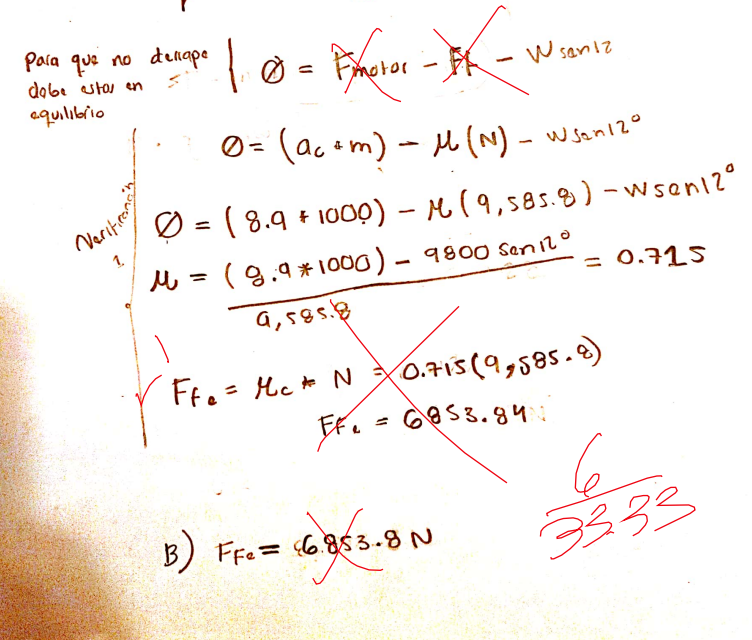 Para que no derrape
debe estar en
equilibrio
Ø = Fmotor - Ff - Wsen12
Ø = (ac * m) - μ(N) - wsen12°
Ø = (8.9 * 1000) - μ(9,585.8) - wsen12°
1.
μ = (8.9 * 1000) - 9800 sen12° = 0.715
9,585.8
Ffe = μc * N = 0.715(9,585.8)
Ffe = 6853.84N
6
33.33
B) FFe = 6853.8 N